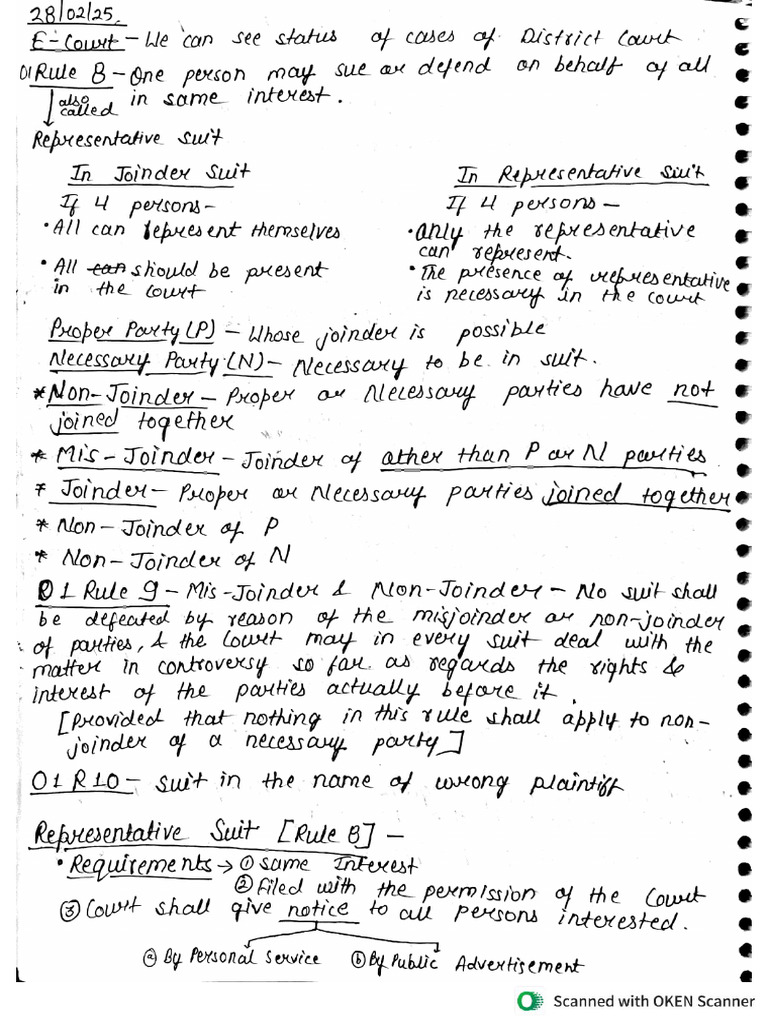 28/02/25.
E-Court - We can see status of cases of District Court
O1 Rule 8 - One person may sue or defend on behalf of all
also called in same interest.
Representative suit
In Joinder Suit
If 4 persons-
• All can represent themselves
• All can should be present
in the court
In Representative Suit
If 4 persons -
• Only the representative
can represent.
• The presence of representative
is necessary in the court
Proper Party (P) - Whose joinder is possible
Necessary Party (N) - Necessary to be in suit.
* Non-Joinder - Proper or Necessary parties have not
joined together
* Mis-Joinder - Joinder of other than P or N parties
* Joinder - Proper or Necessary parties joined together
* Non-Joinder of P
* Non-Joinder of N
O1 Rule 9 - Mis-Joinder & Non-Joinder - No suit shall
be defeated by reason of the misjoinder or non-joinder
of parties, & the Court may in every suit deal with the
matter in controversy so far as regards the rights &
interest of the parties actually before it.
[Provided that nothing in this rule shall apply to non-
joinder of a necessary party]
O1 R10 - suit in the name of wrong plaintiff
Representative Suit [Rule 8] -
• Requirements → ① Same Interest
② Filed with the permission of the Court
③ Court shall give notice to all persons interested.
ⓐ By Personal Service ⓑ By Public Advertisement
Scanned with OKEN Scanner